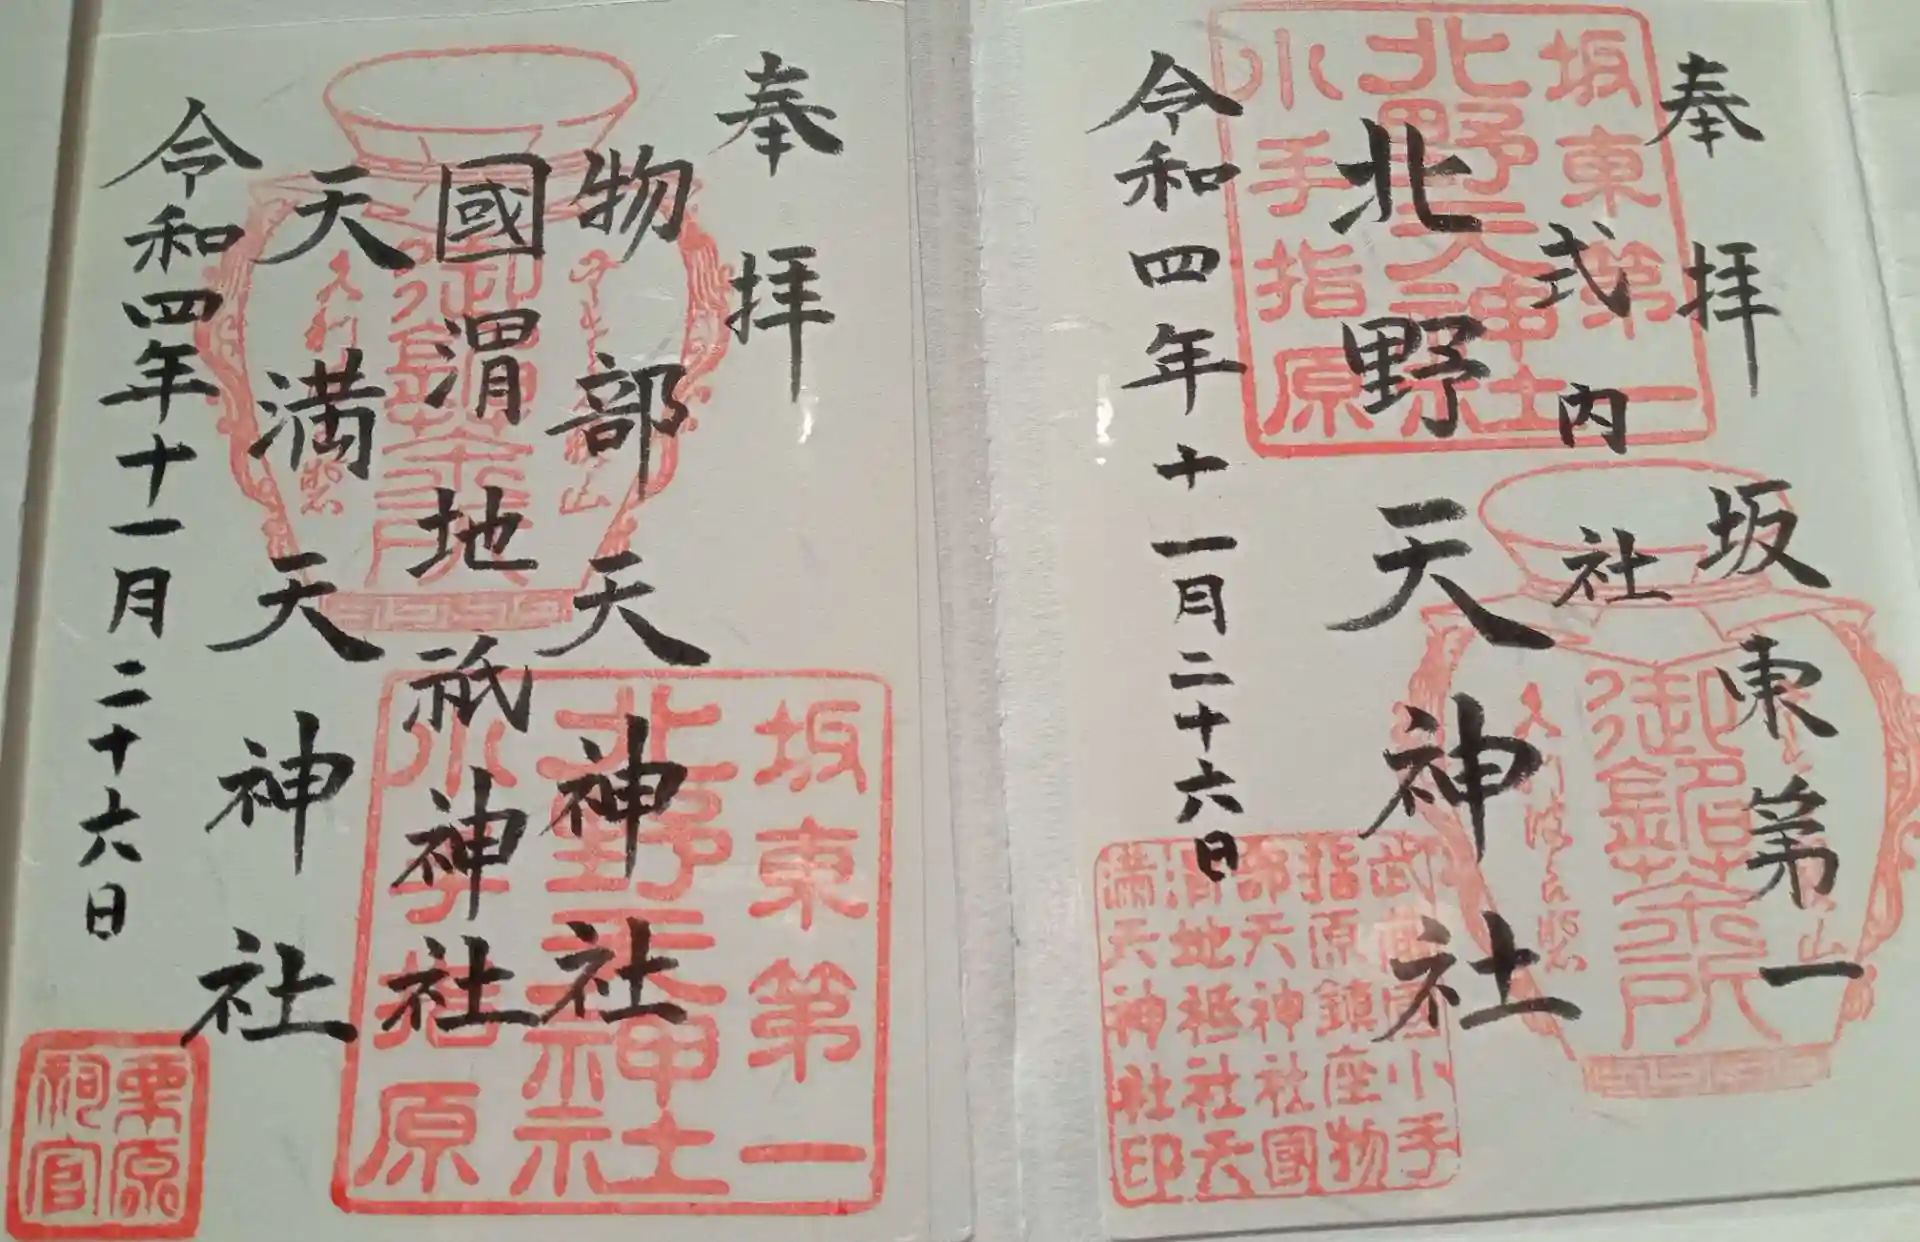 奉拝
坂東第一
式内社
北野天神社
令和四年十一月二十六日
坂東第一
北野天神社
小手指原
御鎰茶所
武蔵国小手
指原鎮座物
部天神社國
渭地祇社天
満天神社印
奉拝
物部天神社
國渭地祇神社
天満天神社
令和四年十一月二十六日
坂東第一
北野天神社
小手指原
栗原
祠官